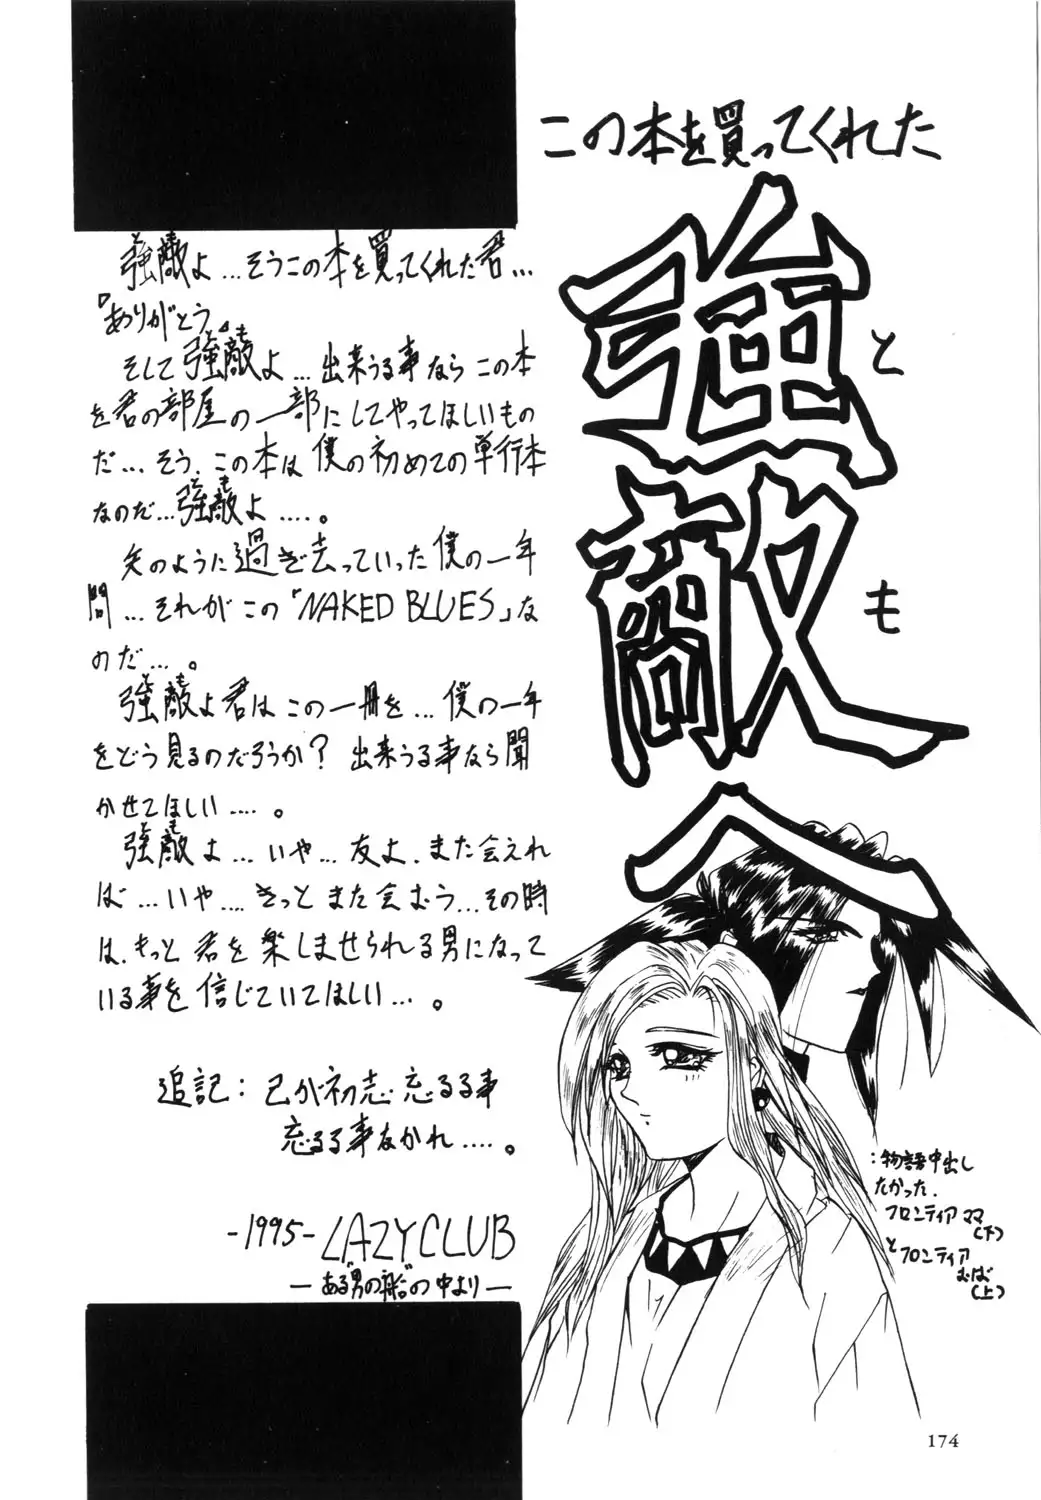 この本を買ってくれた
強敵へ
とも
強敵よ…そうこの本を買ってくれた君…
とも
『ありがとう』
そして強敵よ…出来うる事ならこの本
とも
を君の部屋の一部にしてやってほしいもの
だ…そう、この本は僕の初めての単行本
なのだ…強敵よ….。
とも
矢のように過ぎ去っていった僕の一年
間…それがこの「NAKED BLUES」な
のだ…。
強敵よ君はこの一冊を…僕の一年
とも
をどう見るのだろうか？出来うる事なら聞
かせてほしい….。
強敵よ…いや…友よ、また会えれ
とも
ば…いや….きっとまた会おう…その時
は、もっと君を楽しませられる男になって
いる事を信じていてほしい…。
追記：己が初志忘るる事
忘るる事なかれ….。
-1995- LAZYCLUB
—ある"男の船"の中より—
：物語中出し
たかった、
フロンティアママ
(下)
とフロンティア
むば
(上)
174